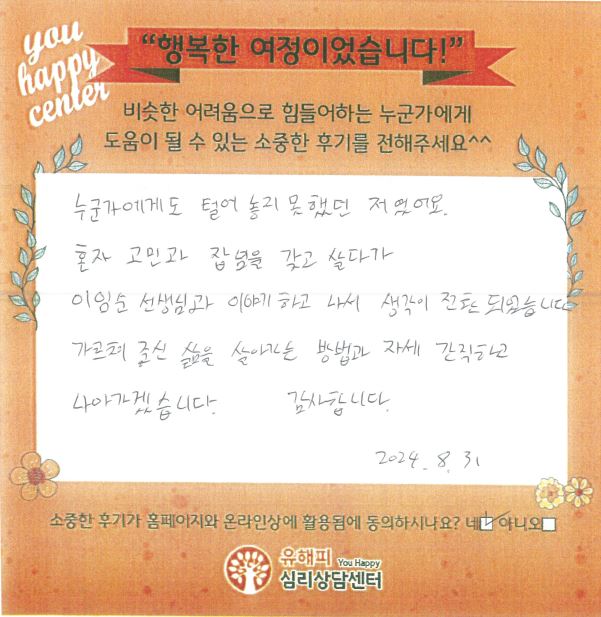 you
happy
center
“행복한 여정이었습니다!”
비슷한 어려움으로 힘들어하는 누군가에게
도움이 될 수 있는 소중한 후기를 전해주세요^^
누군가에게도 털어 놓지 못했던 저였어요.
혼자 고민과 잡념을 갖고 살다가
이임순 선생님과 이야기하고 나서 생각이 전환 되었습니다
가르쳐 주신 삶을 살아가는 방법과 자세 간직하고
나아가겠습니다. 감사합니다.
2024. 8. 31
소중한 후기가 홈페이지와 온라인상에 활용됨에 동의하시나요? 네☑ 아니오□
유해피 You Happy
심리상담센터